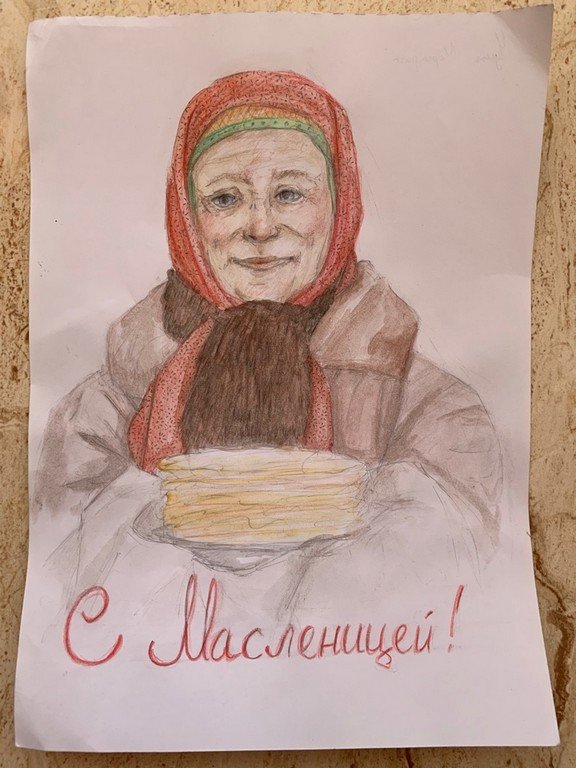 С Масленицей!